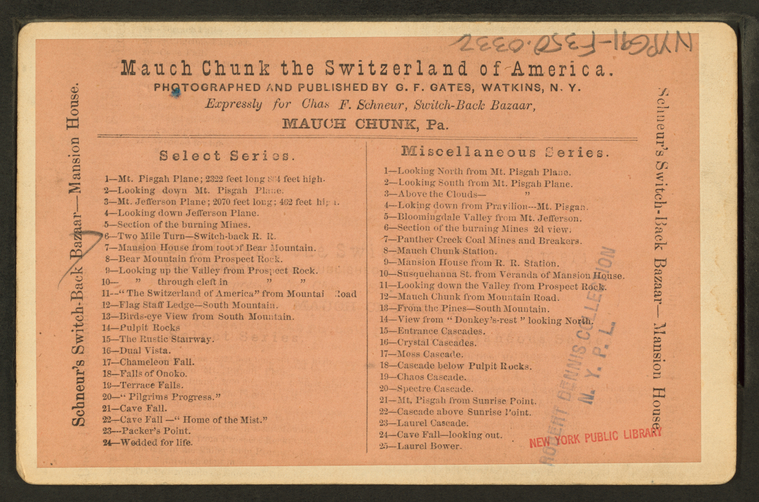 NYPG91-F350.0332
Mauch Chunk the Switzerland of America.
PHOTOGRAPHED AND PUBLISHED BY G. F. GATES, WATKINS, N. Y.
Expressly for Chas F. Schneur, Switch-Back Bazaar,
MAUCH CHUNK, Pa.
Schneur's Switch-Back Bazaar—Mansion House.
Select Series.
1—Mt. Pisgah Plane; 2322 feet long 664 feet high.
2—Looking down Mt. Pisgah Plane.
3—Mt. Jefferson Plane; 2070 feet long; 462 feet high.
4—Looking down Jefferson Plane.
5—Section of the burning Mines.
6—Two Mile Turn—Switch-back R. R.
7—Mansion House from foot of Bear Mountain.
8—Bear Mountain from Prospect Rock.
9—Looking up the Valley from Prospect Rock.
10— " through cleft in " "
11—"The Switzerland of America" from Mountai Road
12—Flag Staff Ledge—South Mountain.
13—Birds-eye View from South Mountain.
14—Pulpit Rocks
15—The Rustic Stairway.
16—Dual Vista.
17—Chameleon Fall.
18—Falls of Onoko.
19—Terrace Falls.
20—" Pilgrims Progress."
21—Cave Fall.
22—Cave Fall—" Home of the Mist."
23—Packer's Point.
24—Wedded for life.
Miscellaneous Series.
1—Looking North from Mt. Pisgah Plane.
2—Looking South from Mt. Pisgah Plane.
3—Above the Clouds— "
4—Loking down from Pravilion—Mt. Pisgah.
5—Bloomingdale Valley from Mt. Jefferson.
6—Section of the burning Mines 2d view.
7—Panther Creek Coal Mines and Breakers.
8—Mauch Chunk Station.
9—Mansion House from R. R. Station.
10—Susquehanna St. from Veranda of Mansion House.
11—Looking down the Valley from Prospect Rock.
12—Mauch Chunk from Mountain Road.
13—From the Pines—South Mountain.
14—View from " Donkey's-rest " looking North.
15—Entrance Cascades.
16—Crystal Cascades.
17—Moss Cascade.
18—Cascade below Pulpit Rocks.
19—Chaos Cascade.
20—Spectre Cascade.
21—Mt, Pisgah from Sunrise Point.
22—Cascade above Sunrise Point.
23—Laurel Cascade.
24—Cave Fall—looking out.
25—Laurel Bower.
Schneur's Switch-Back Bazaar— Mansion House
ROBERT DENNIS COLLECTION
N. Y. P. L.
NEW YORK PUBLIC LIBRARY